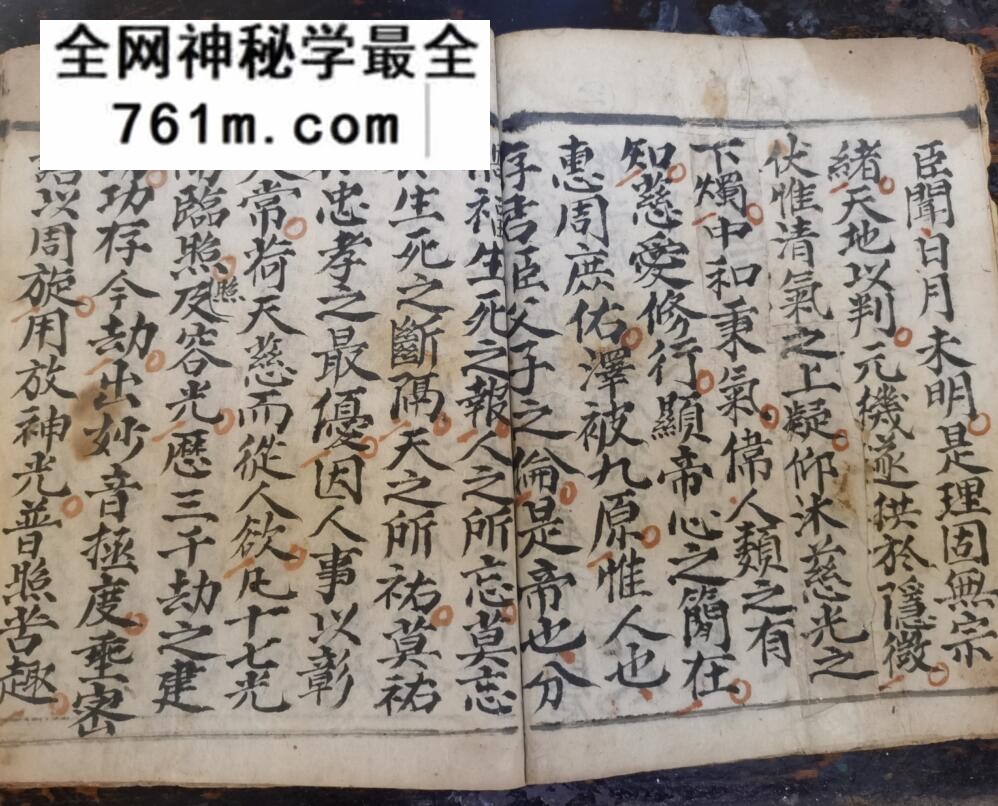 全网神秘学最全
761m.com
臣聞日月未明是理固無宗
緒天地以判元機遂拱於隱微
伏惟清氣之上凝仰沐慈光之
下燭中和秉氣偉人類之有
知慈愛修行顯帝心之簡在
惠周庶佑澤被九原惟人也
存君臣父子之倫是帝也分
福生死之報人之所忘莫忘
生死之斷隔天之所祐莫祐
忠孝之最優因人事以彰
常荷天慈而從人欲凡十七光
臨照及容光歷三千劫之建
照
功存今劫出妙音拯度垂密
以周旋用放神光普照苦趣